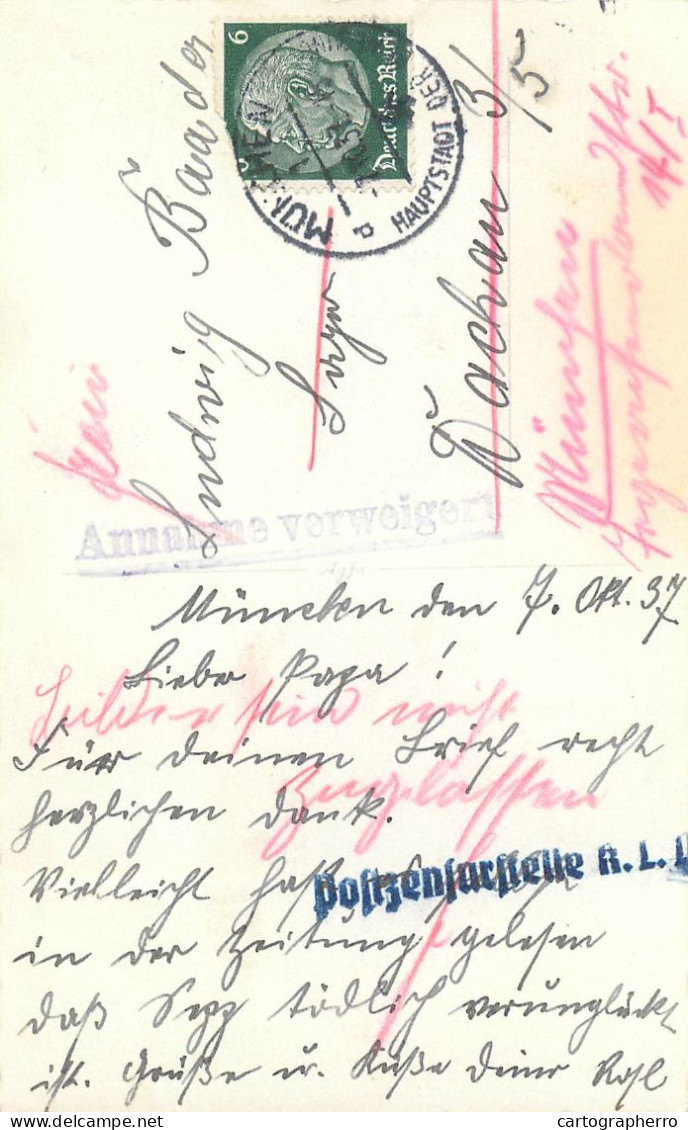 Herrn
Ludwig Baader
Lager
Dachau 3/5
6
Deutsches Reich
MÜNCHEN
HAUPTSTADT DER
München
14/I
Annahme verweigert
Agfa
München den 7. Okt. 37
Lieber Papa!
Bilder sind nicht
Für deinen Brief recht
zugelassen
herzlichen Dank.
Postzensurstelle K. L. D
Vielleicht hast
in der Zeitung gelesen
daß Sepp tödlich verunglückt
ist. Grüße u. Küße deine Rosl
cartographerro